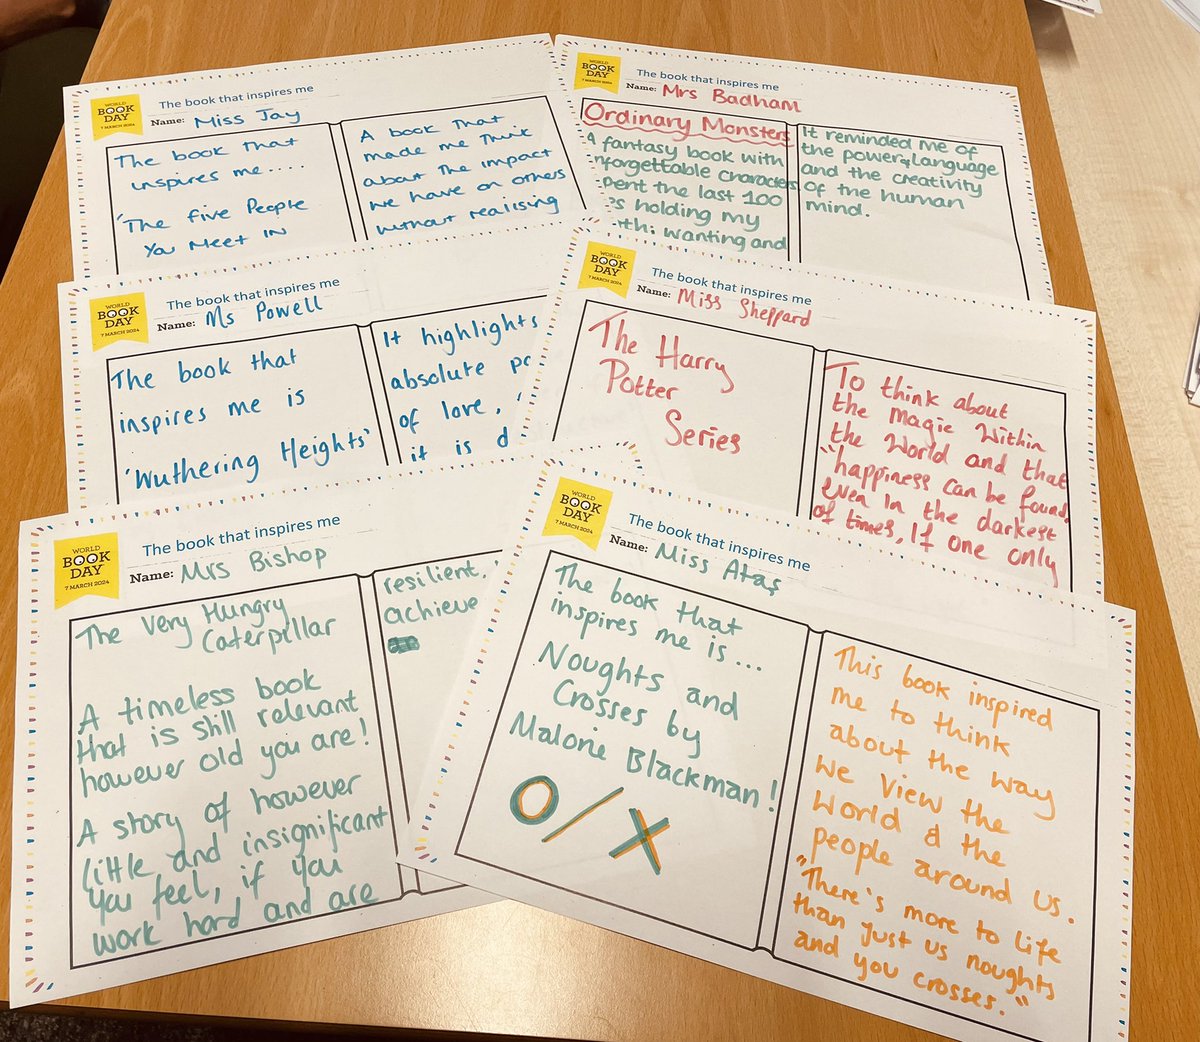 WORLD
BOOK
DAY
7 MARCH 2024
The book that inspires me
Name: Miss Jay
The book that
inspires me.....
'The five People
You Meet IN
A book that
made me think
about the impact
we have on others
without realising
WORLD
BOOK
DAY
7 MARCH 2024
The book that inspires me
Name: Mrs Badham
Ordinary Monsters
A fantasy book with
unforgettable characters
spent the last 100
holding my
wanting and
It reminded me of
the power of language
and the creativity
of the human
mind.
WORLD
BOOK
DAY
7 MARCH 2024
The book that inspires me
Name: Ms Powell
The book that
inspires me is
'Wuthering Heights'
It highlights
absolute
of love,
it is
WORLD
BOOK
DAY
7 MARCH 2024
The book that inspires me
Name: Miss Sheppard
The Harry
Potter
Series
To think about
the magic within
the World and that
"happiness can be found,
even in the darkest
of times, If one only
WORLD
BOOK
DAY
7 MARCH 2024
The book that inspires me
Name: Mrs Bishop
The Very Hungry
Caterpillar
A timeless book
that is still relevant
however old you are!
A story of however
little and insignificant
you feel, if you
work hard and are
resilient,
achieve
WORLD
BOOK
DAY
7 MARCH 2024
The book that inspires me
Name: Miss Ataş
The book that
inspires me is...
Noughts and
Crosses by
Malorie Blackman!
O/X
This book inspired
me to think
about the way
we view the
World & the
people around us.
"There's more to life
than just us noughts
and you crosses."